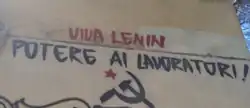 VIVA LENIN
POTERE AI LAVORATORI!